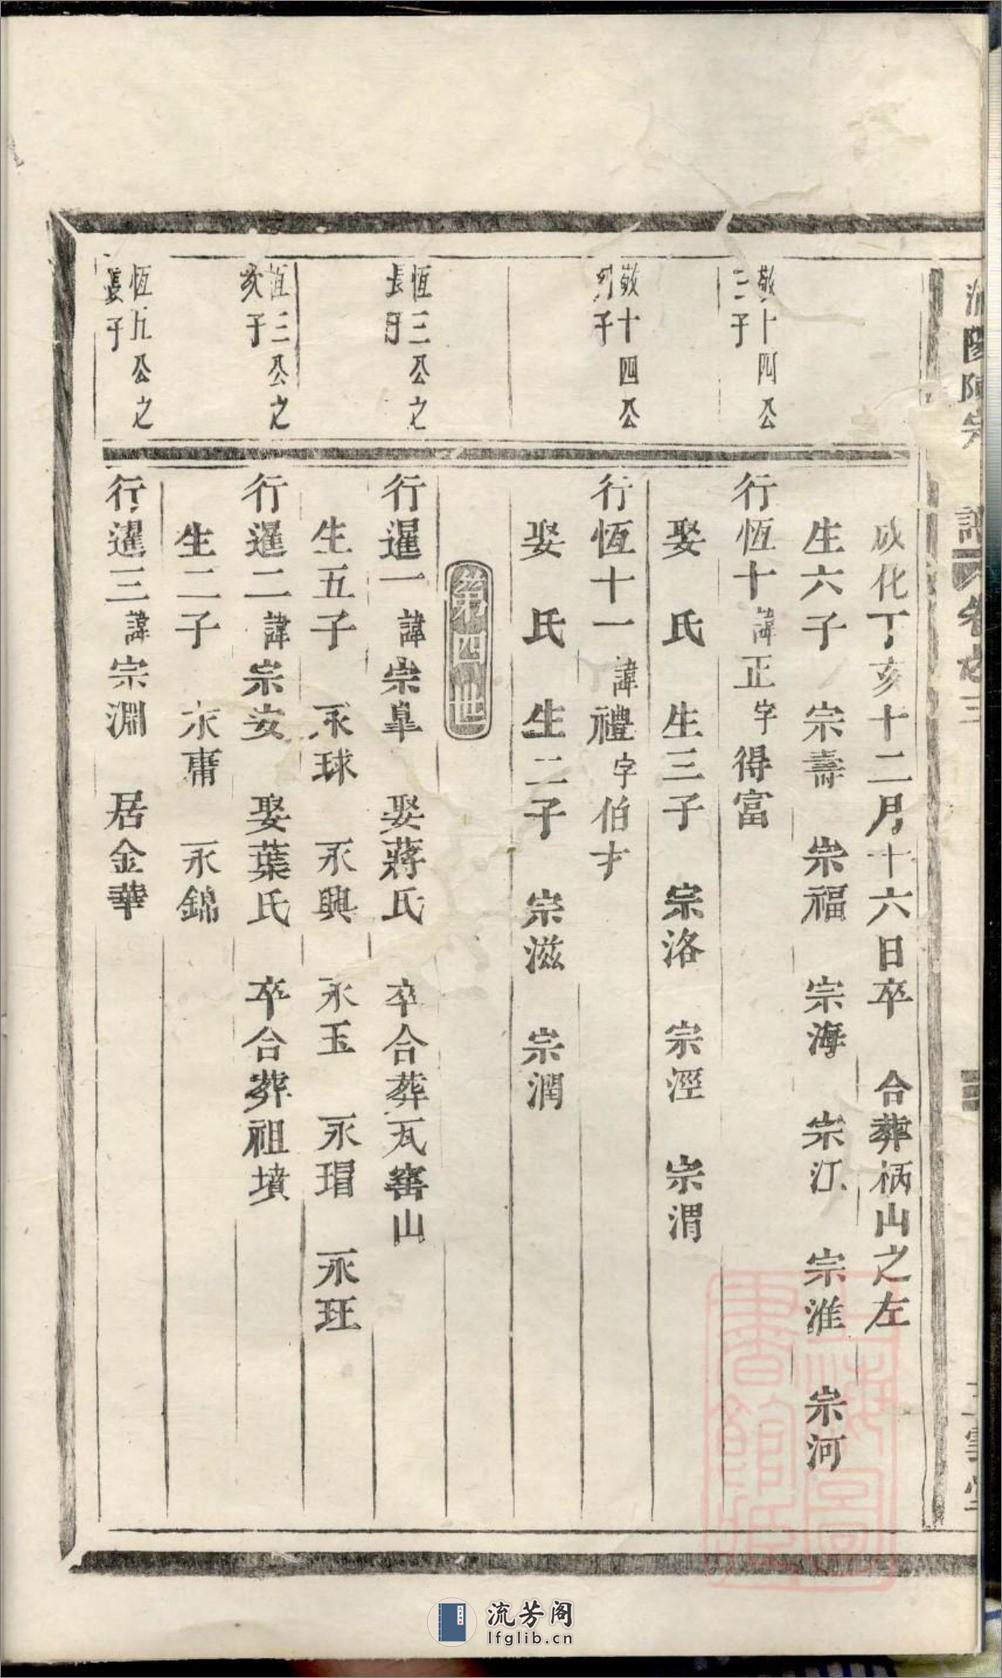 成化丁亥十二月十六日卒　合葬柄山之左
生六子　宗壽　宗福　宗海　宗江　宗淮　宗河
敬十四公
三子
行恆十諱正字得富
娶　氏　生三子　宗洛　宗涇　宗渭
敬十四公
子
行恆十一諱禮字伯才
娶　氏　生二子　宗滋　宗潤
第四世
恆三公之
長子
行暹一諱宗臯　娶蔣氏　卒合葬瓦窰山
生五子　永球　永興　永玉　永瑁　永玨
恆三公之
次子
行暹二諱宗安　娶葉氏　卒合葬祖墳
生二子　永庸　永錦
恆五公之
長子
行暹三諱宗淵　居金華
流芳阁
lfglib.cn